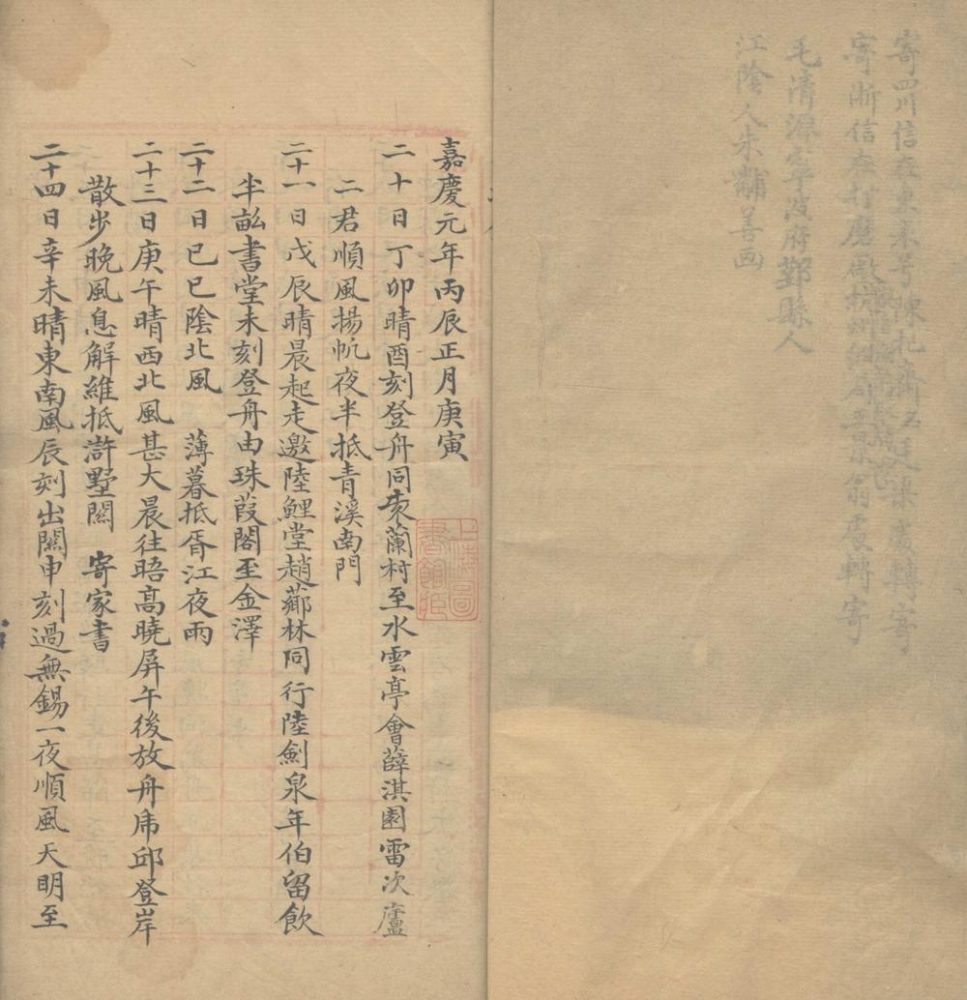 寄四川信在東
寄浙信在打磨廠
毛清源寧波府鄞縣人
江陰人朱黼善画
嘉慶元年丙辰正月庚寅
二十日丁卯晴酉刻登舟同家蘭村至水雲亭會薛淇園雷次廬
二君順風揚帆夜半抵青溪南門
二十一日戊辰晴晨起走邀陸鯉堂趙薌林同行陸劍泉年伯留飲
半畝書堂未刻登舟由珠葭閣至金澤
二十二日己巳陰北風 薄暮抵胥江夜雨
二十三日庚午晴西北風甚大晨往晤高曉屏午後放舟虎邱登岸
散步晚風息解維抵滸墅關 寄家書
二十四日辛未晴東南風辰刻出關申刻過無錫一夜順風天明至
上海圖
書館藏